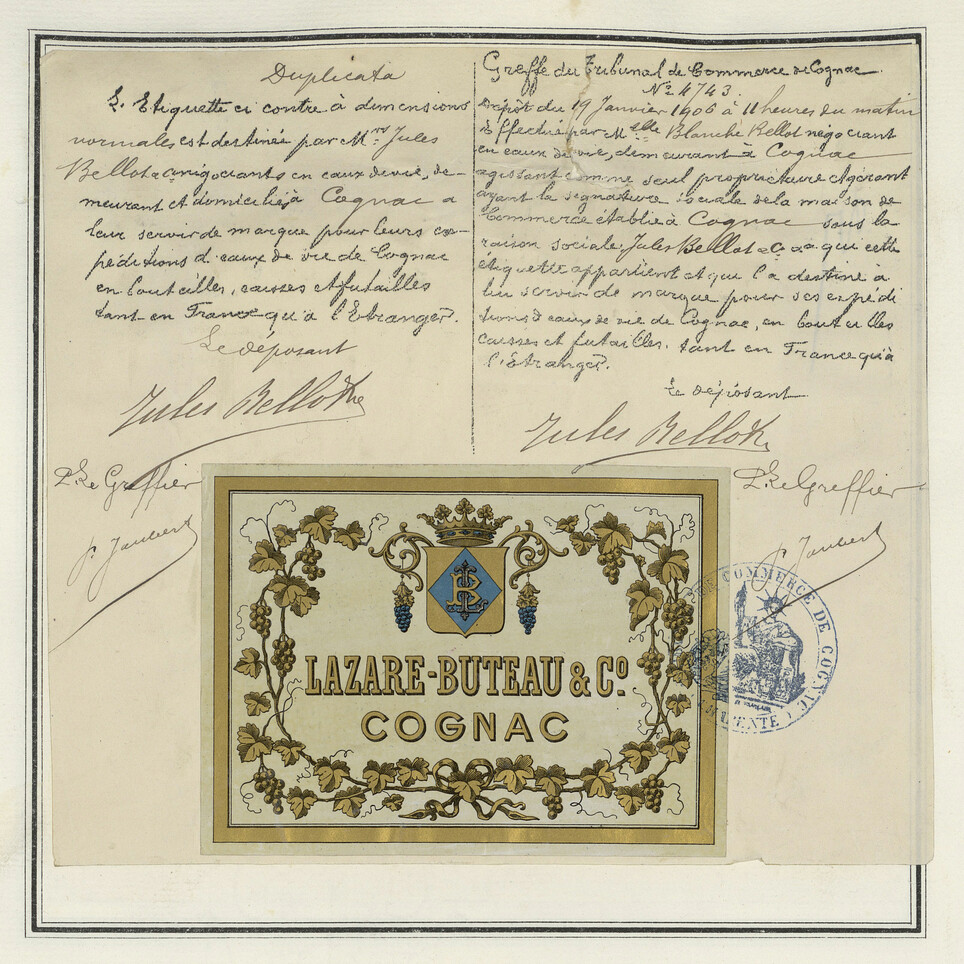 Duplicata
L'Etiquette ci contre à dimensions
normales est destinée par Mrs Jules
Bellot & Ce négociants en eaux de vie, de-
meurant et domiciliés à Cognac a
leur servir de marque pour leurs ex-
péditions d'eaux de vie de Cognac
en bouteilles, caisses et futailles
tant en France qu'à l'Etranger.
Le déposant
Jules Bellot & Ce
Pr Le Greffier
Greffe du Tribunal de Commerce de Cognac
No 4743.
Dépôt du 19 Janvier 1906 à 11 heures du matin
Effectué par Melle Blanche Bellot négociant
en eaux de vie, demeurant à Cognac
agissant comme seul propriétaire et gérant
ayant la signature sociale de la maison de
Commerce établie à Cognac sous la
raison sociale Jules Bellot & Ce qui cette
étiquette appartient et qui l'a destine à
lui servir de marque pour ses expédi
tions d'eaux de vie de Cognac, en bouteilles
caisses et futailles, tant en France qu'à
l'Etranger.
Le déposant
Jules Bellot & Ce
Pr Le Greffier
LAZARE-BUTEAU & Co.
COGNAC
COMMERCE DE COGNAC